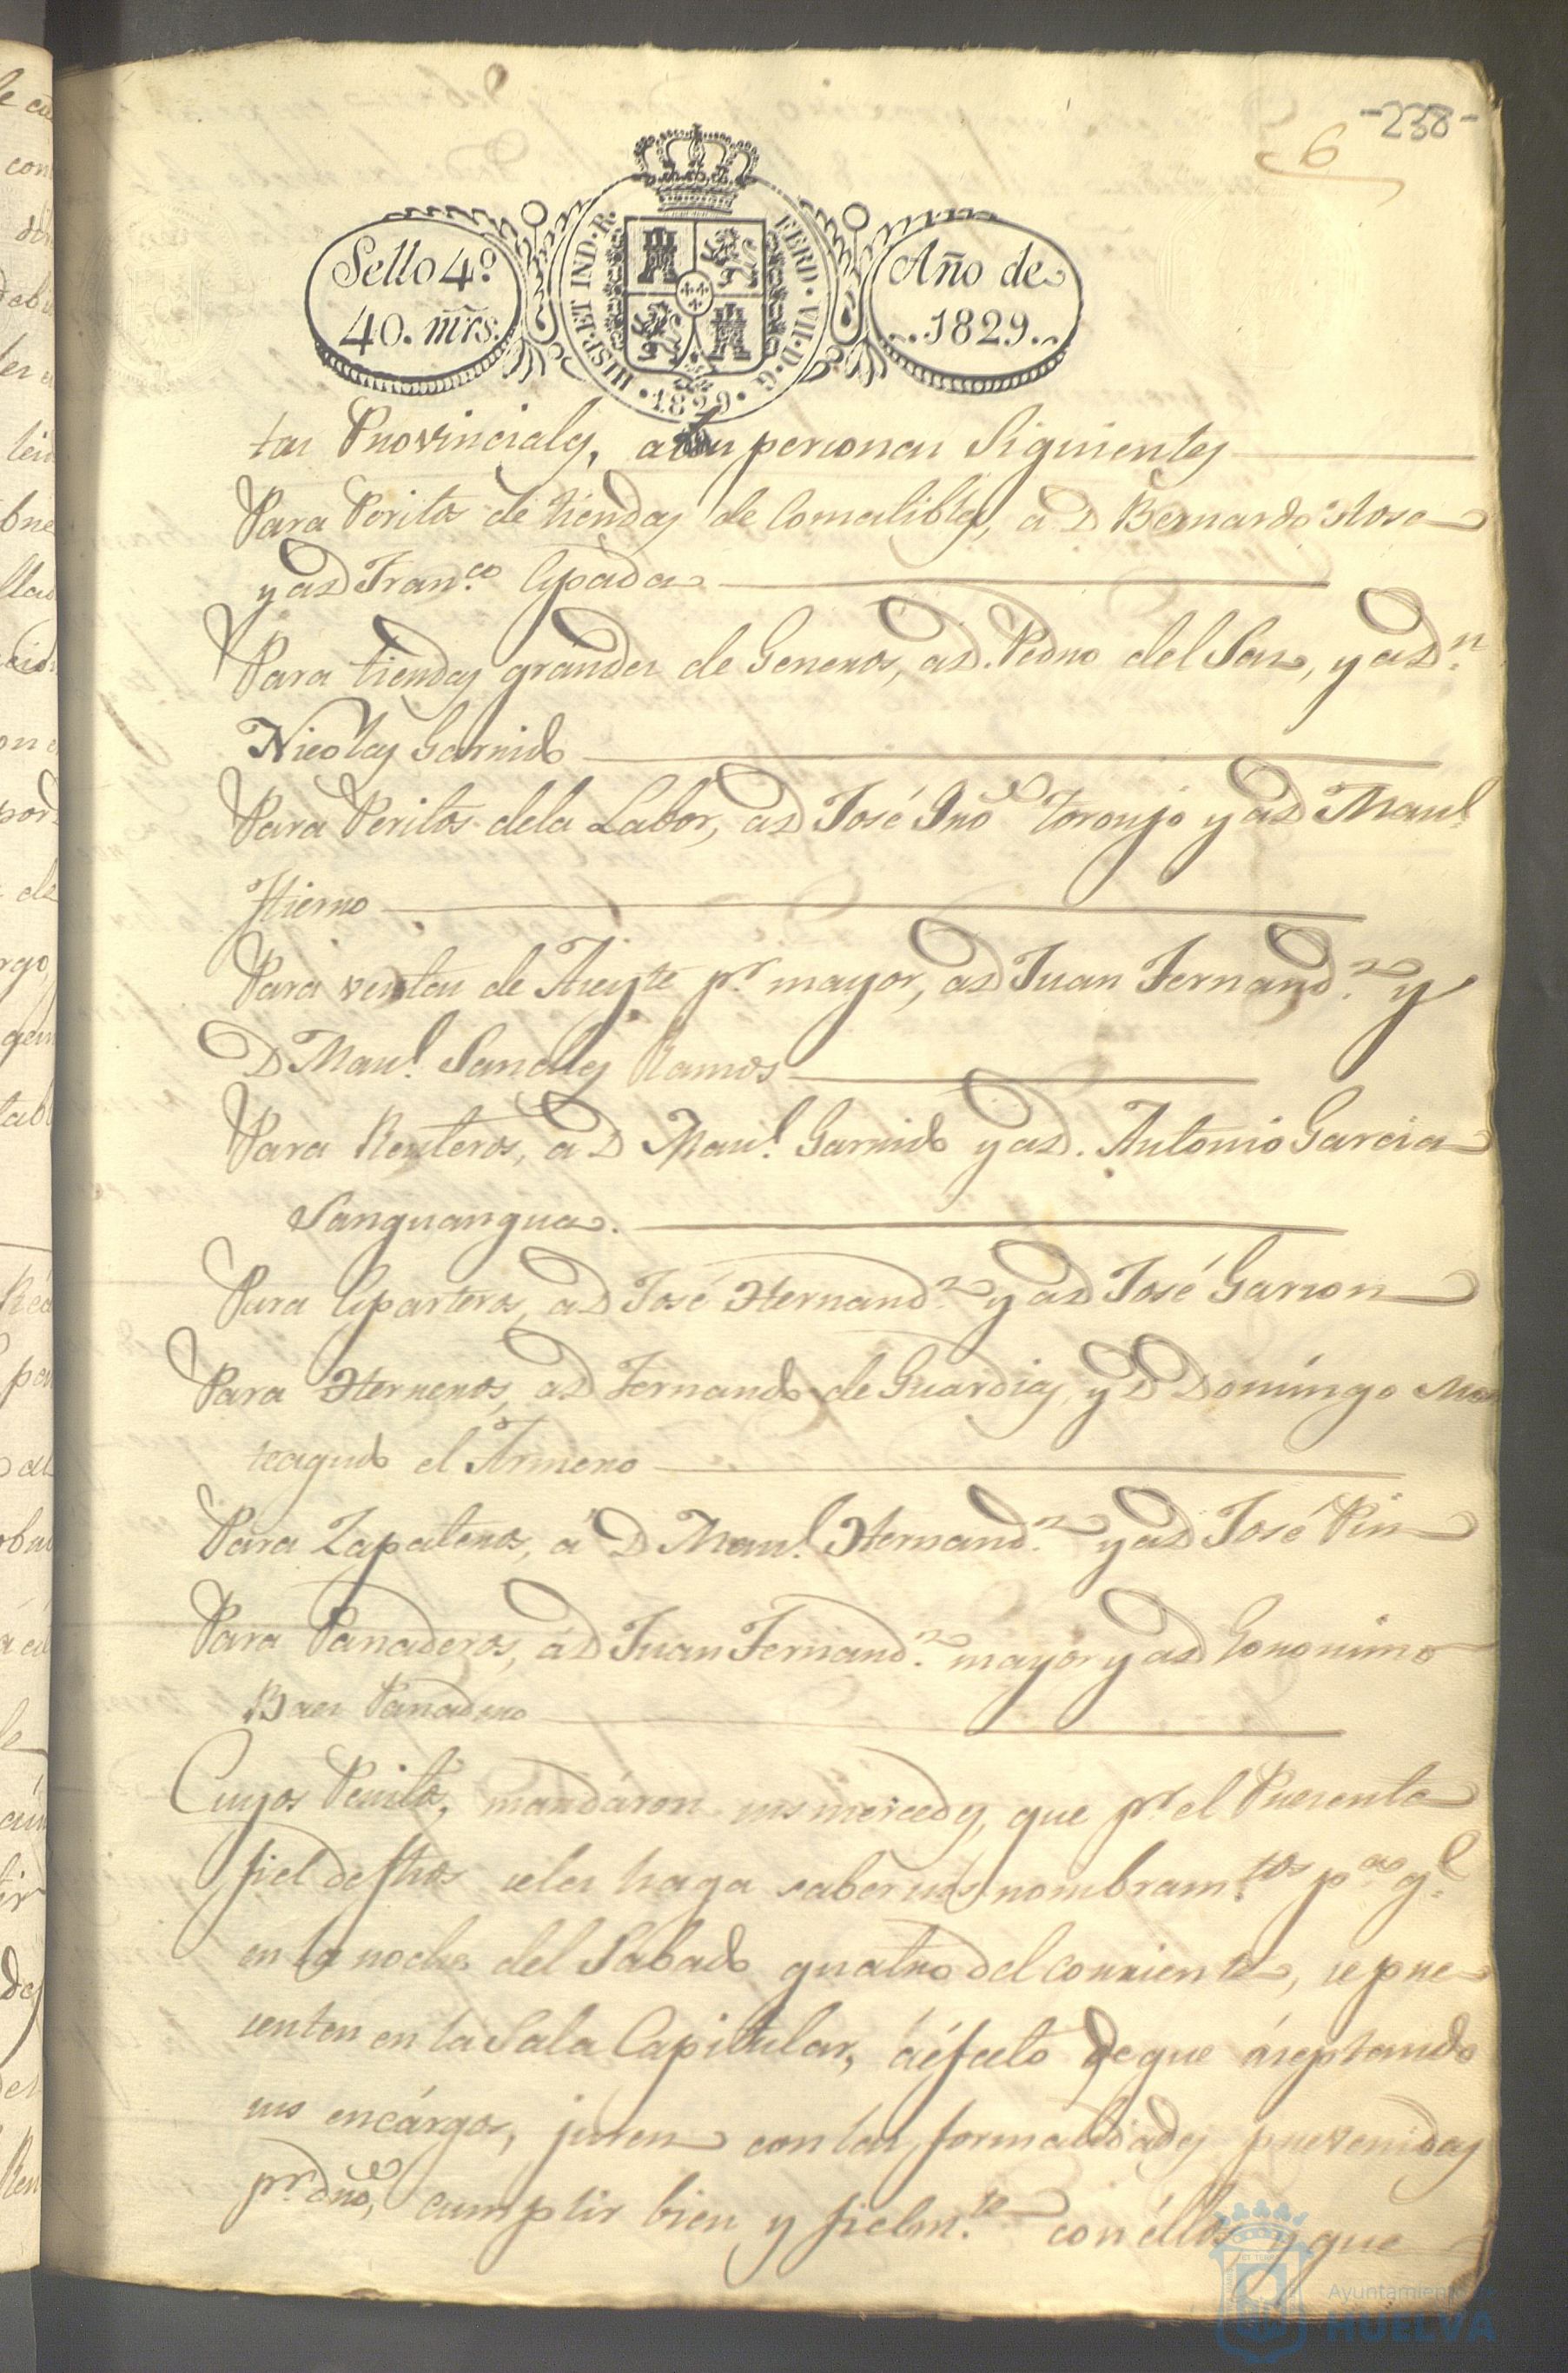 -238-
6
Sello 4º
40. mrs.
HISP. ET IND. R. FERD. VII. D. G.
1829
Año de
1829.
tas Provinciales, a las personas siguientes
Para Peritos de tiendas de Comestibles, a D Bernardo
y a D Franco. Espada
Para tiendas grandes de Generos, a D. Pedro del Saz, y a Dn.
Nicolas Garrido
Para Peritos dela Labor, a D José Ino Toronjo y a D Manl.
Hierno
Para ventas de Aseyte pr. mayor, a D Juan Fernandz. y
D Manl. Sanches Ramos
Para Renteros, a D Manl. Garrido y a D. Antonio Garcia
Sanguangua.
Para Esparteros, a D José Hernandz. y a D José Garzon
Para Herreros, a D Fernando de Guardias, y D Domingo Mon
teagudo el Armero
Para Zapateros, á D Manl. Hernandz. y a D José Pin
Para Panaderos, á D Juan Fernandz. mayor y a D Geronimo
Baes Panadero
Cuyos Peritos, mandáron sus mercedes, que pr. el Presente
fiel de fhos se les haga saber sus nombramtos. pa. qe.
en la noche del Sabado quatro del corriente, se pre
senten en la Sala Capitular, á éfecto de que áseptando
sus encárgos, juren con las formalidades prevenidas
pr. dro, cumplir bien y fielmte. con éllos y que
Ayuntamiento de
HUELVA